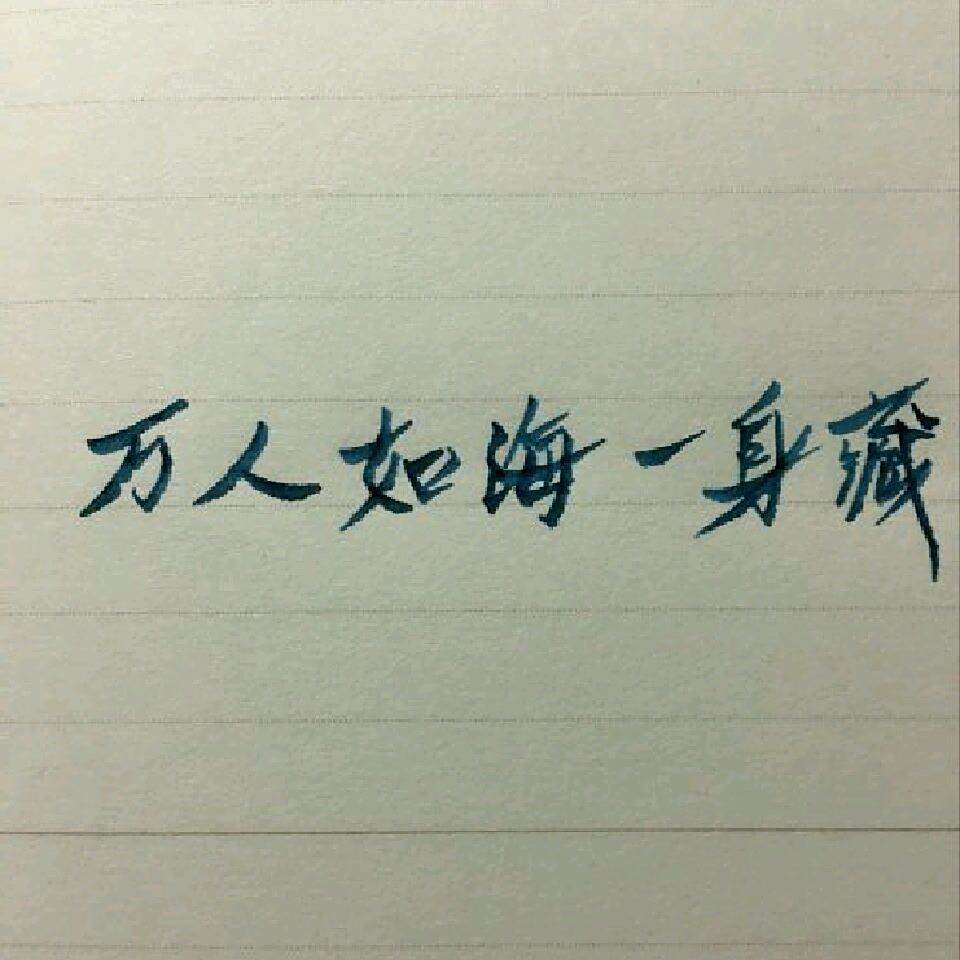 万人如海一身藏